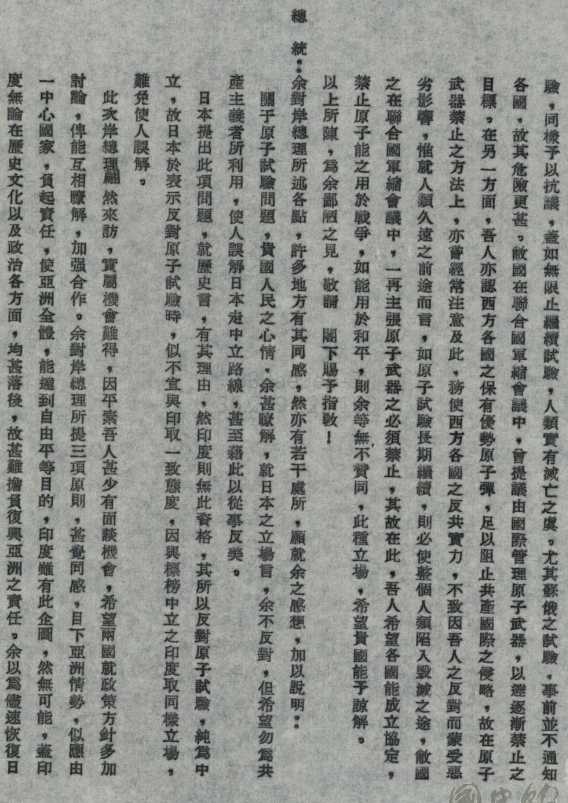 驗，同樣予以抗議，蓋如無限止繼續試驗，人類實有滅亡之虞。尤其蘇俄之試驗，事前並不通知
各國，故其危險更甚。敝國在聯合國軍縮會議中，曾提議由國際管理原子武器，以逐漸禁止之
目標。在另一方面，吾人亦認西方各國之保有優勢原子彈，足以阻止共產國際之侵略，故在原子
武器禁止之方法上，亦曾經常注意及此，務使西方各國之反共實力，不致因吾人之反對而蒙受惡
劣影響，惟就人類久遠之前途而言，如原子試驗長期繼續，則必使整個人類陷入毀滅之途，敝國
之在聯合國軍縮會議中，一再主張原子武器之必須禁止，其故在此，吾人希望各國能成立協定，
禁止原子能之用於戰爭，如能用於和平，則余等無不贊同，此種立場，希望貴國能予諒解。
以上所陳，爲余鄙陋之見，敬請　閣下賜予指教！
總　統：余對岸總理所述各點，許多地方有其同感，然亦有若干處所，願就余之感想，加以說明：
關于原子試驗問題，貴國人民之心情，余甚瞭解，就日本之立場言，余不反對，但希望勿爲共
產主義者所利用，使人誤解日本走中立路線，甚至藉此以從事反美。
日本提出此項問題，就歷史言，有其理由，然印度則無此資格，其所以反對原子試驗，純爲中
立，故日本於表示反對原子試驗時，似不宜與印取一致態度，因與標榜中立之印度取同樣立場，
難免使人誤解。
此次岸總理翩然來訪，實屬機會難得，因平素吾人甚少有面談機會，希望兩國就政策方針多加
討論，俾能互相瞭解，加强合作。余對岸總理所提三項原則，甚覺同感，目下亞洲情勢，似應由
一中心國家，負起責任，使亞洲全體，能達到自由平等目的，印度雖有此企圖，然無可能，蓋印
度無論在歷史文化以及政治各方面，均甚落後，故甚難擔負復興亞洲之責任。余以爲儘速恢復日